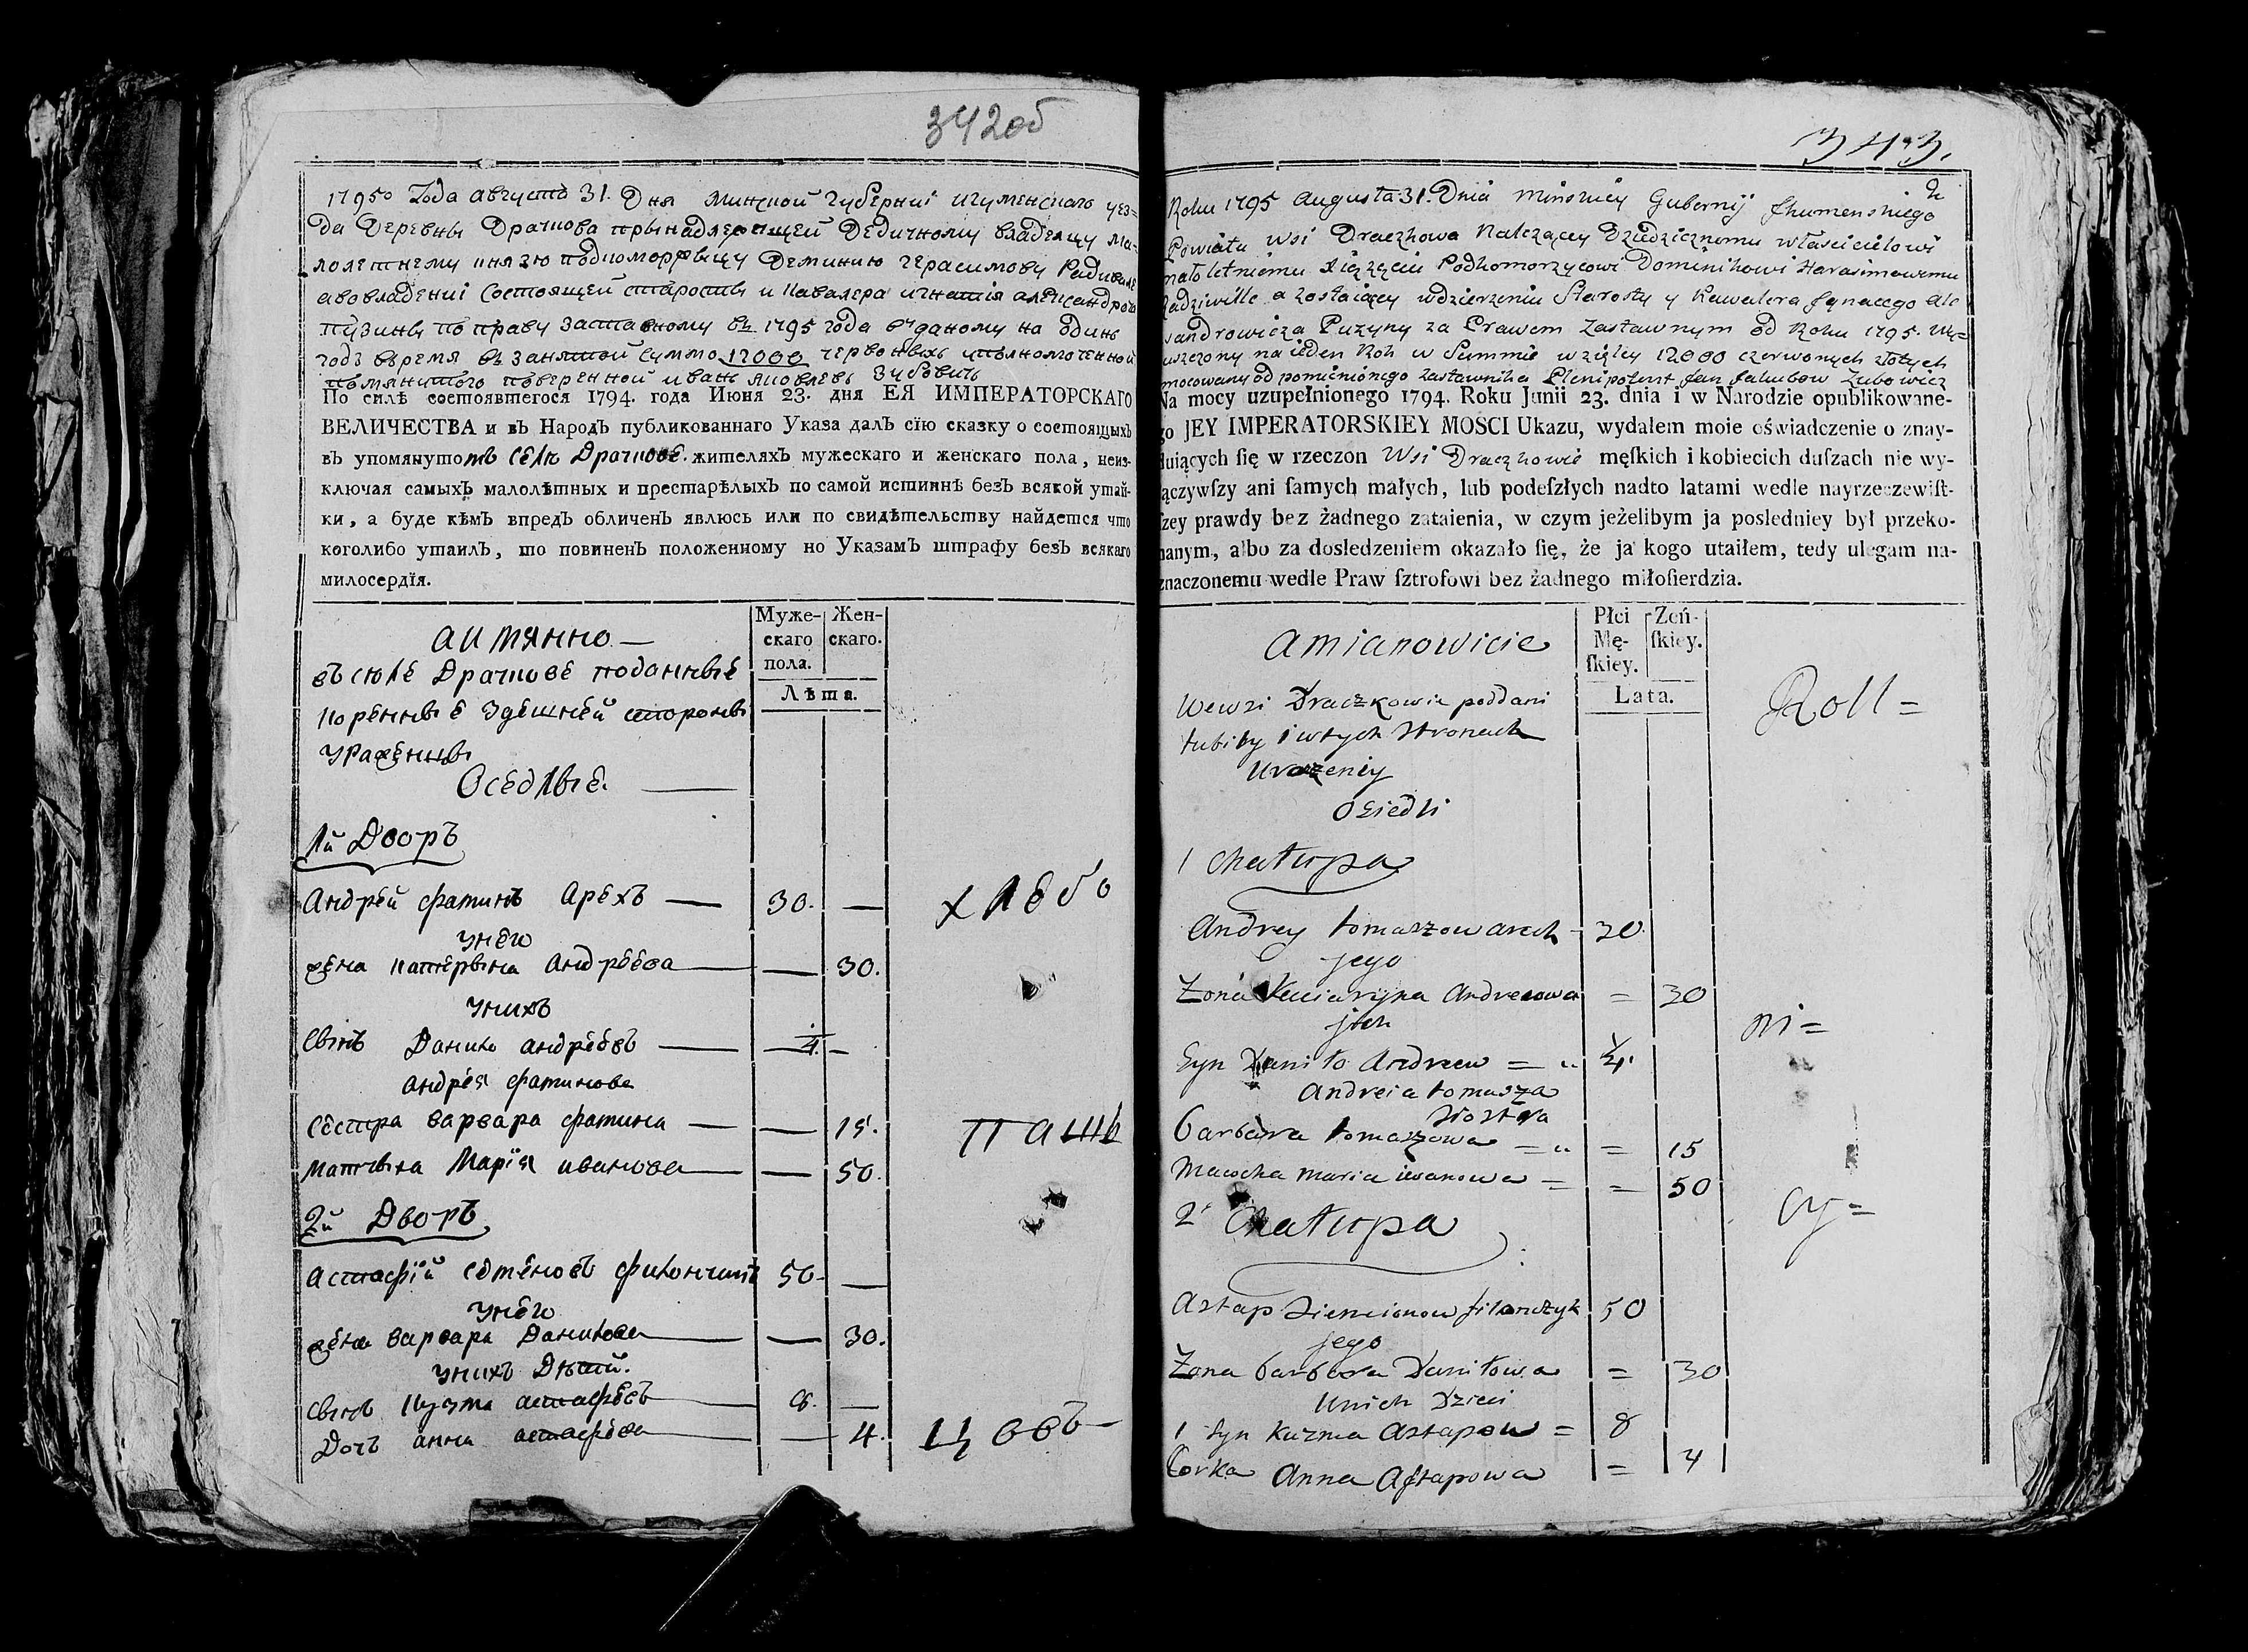 342об
1795о Года августа 31. Дня Минской Губерниі Игуменскаго уез=
да Деревны Драчкова прынадлежащей Дедичному владелцу ма-
лолетнему князю подкоморжыцу Доминику Герасимову Радивиле
а во владениі состоящей старосты и кавалера игнатія александрова
пузины по праву заставному въ 1795 года
годъ время въ занятой суммо 12000 червоныхъ уполномоченной
помянутого поверенной иванъ яковлевъ Зубовичь
По силѣ состоявшегося 1794. года Июня 23. дня ЕЯ ИМПЕРАТОРСКАГО
ВЕЛИЧЕСТВА и въ Народъ публикованнаго Указа далъ сїю сказку о состоящыхъ
въ упомянутомъ селѣ Драчкове. жителяхъ мужескаго и женскаго пола, неиз-
ключая самыхъ малолѣтныхъ и престарѣлыхъ по самой истиннѣ безъ всякой утай-
ки, а буде кѣмъ впредъ обличенъ явлюсь или по свидѣтельству найдется что
коголибо утаилъ, то повиненъ положенному по Указамъ штрафу безъ всякаго
милосердїя.
Муже-скаго пола. Жен-скаго.
Лѣта.
аимянно —
въ селе Драчкове поданные
коренные здешней стороны
ураженцы
Оседлые. —
1й Дворъ
Андрей фоминъ Арехъ — 30. —
унего
жена катерына Андреева — — 30.
унихъ
сынъ Данило андреевъ — 1/4. —
андрея фоминова
сестра варвара фомина — — 15.
мачыха Марїя иванова — — 50.
2й Дворъ
астафїй семеновъ филончикъ 50 —
унего
жена варвара Данилова — — 30.
унихъ Дѣти.
сынъ кузма астафеевъ — 8. —
Дочъ анна астафеева — — 4.
хлебо
пашь
цовъ —
343.
2
Roku 1795 Augusta 31. Dnia Minskiey Gubernij Jhumenskiego
Powiatu Wsi Draczkowa Należącey Dziedzicznemu właścicielowi
małoletniemu Xiążęciu Podkomorzycowi Dominikowi Harasimowemu
Radziwille a zostaiącey wdzierżeniu Starosty y Kawalera Jgnacego Ale
xandrowicza Puzyny za Prawem Zastawnym od Roku 1795. wy=
puszczony na ieden Rok w Summie wziętey 12000 czerwonych złotych
mocowany od pomienionego zastawnika Plenipotent Jan Jakubow Zubowicz
Na mocy uzupełnionego 1794. Roku Junii 23. dnia i w Narodzie opublikowane-
go JEY IMPERATORSKIEY MOSCI Ukazu, wydałem moie oświadczenie o znay-
duiących ſię w rzeczon Wsi Draczkowie męſkich i kobiecich duſzach nie wy-
łączywſzy ani ſamych małych, lub podeſzłych nadto latami wedle nayrzeczewiſt-
ſzey prawdy bez żadnego zataienia, w czym jeżelibym ja posledniey był przeko-
nanym, albo za dosledzeniem okazało ſię, że ja kogo utaiłem, tedy ulegam na-
znaczonemu wedle Praw ſztrofowi bez żadnego miłoſierdzia.
Płci Mę-ſkiey. Zeń-ſkiey.
Lata.
Amianowicie
Wewsi Draczkowie poddani
tubily i wtych Stronach
Urozeniy
Osiedli
1 Chałupa
Andrey tomaszow arech - 30
jego
Żona Kaciaryna Andreiowa = 30
jich
Syn Daniło Andreew = „ 1/4.
Andreia tomasza
siostra
barbara tomaszowa = „ = 15
Macocha maria iwanowa = = 50
2 Chałupa
Astap Siemionow filonczyk 50
jego
Żona barbara Daniłowa = 30
Unich Dzieci
1 Syn Kuzma Astapow = 8
Corka Anna Astapowa = 4
Roll =
ni =
cy =